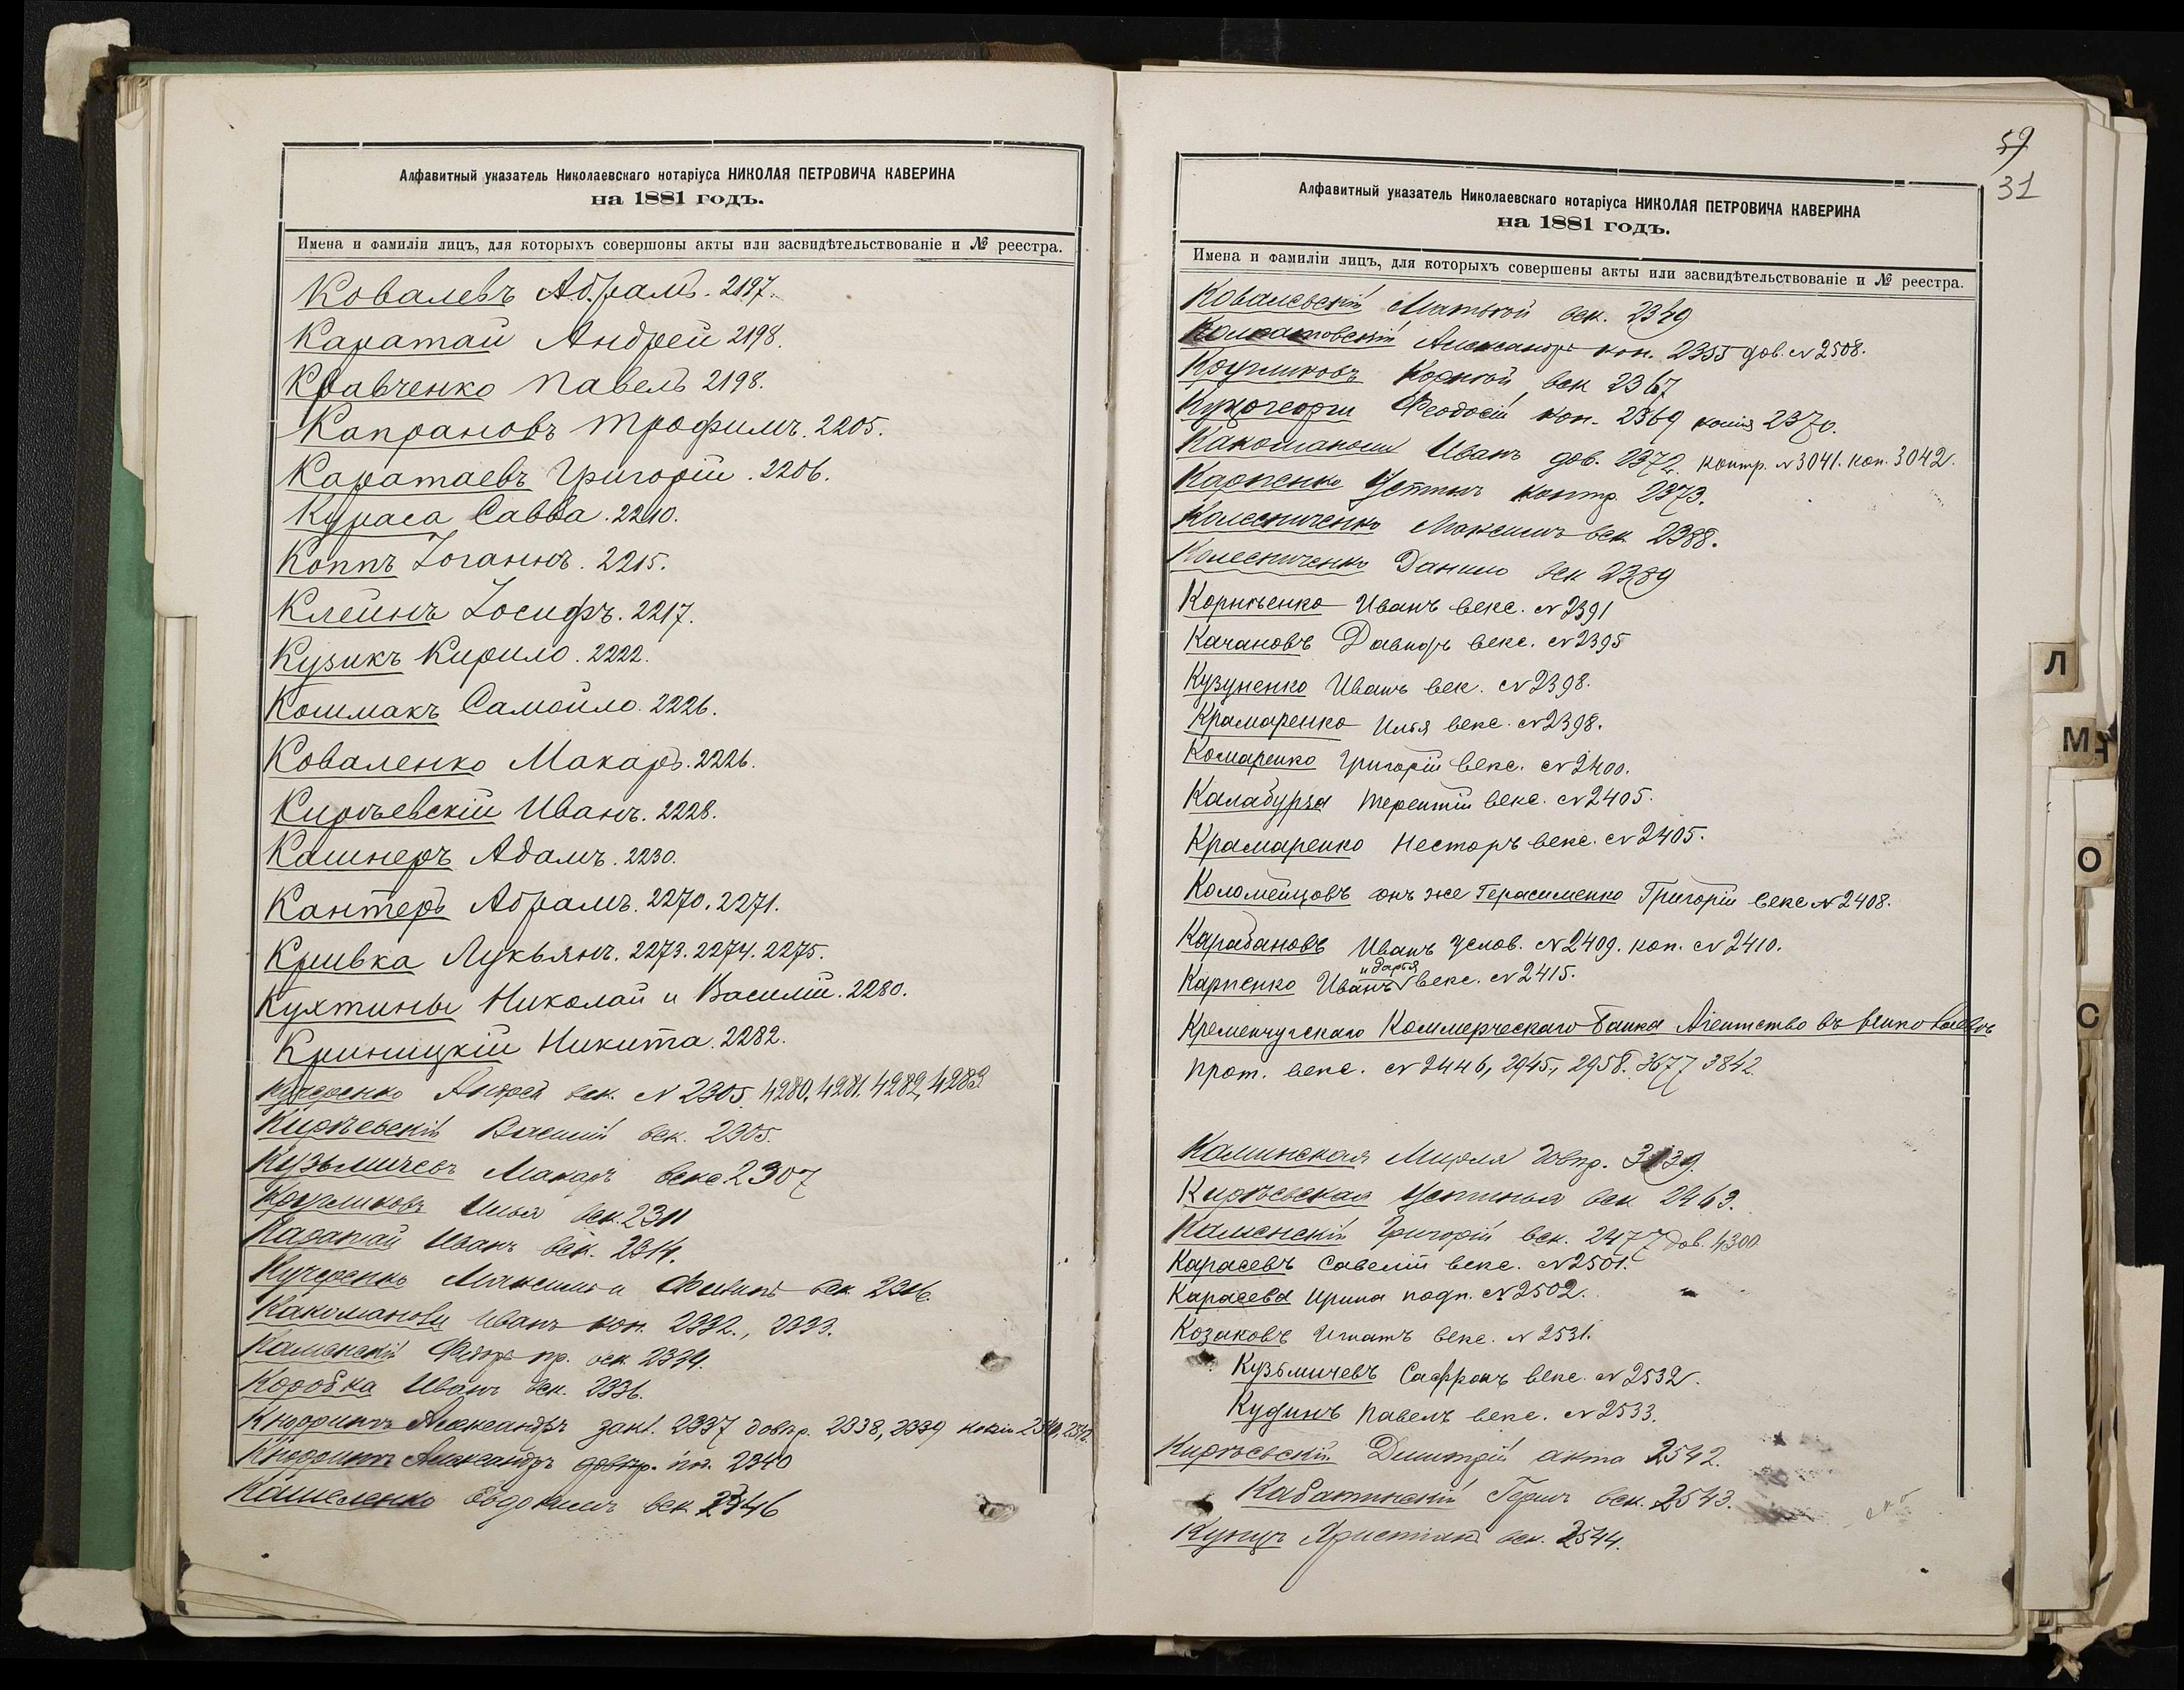 Алфавитный указатель Николаевскаго нотаріуса НИКОЛАЯ ПЕТРОВИЧА КАВЕРИНА
на 1881 годъ.
Имена и фамиліи лицъ, для которыхъ совершоны акты или засвидѣтельствованіе и № реестра.
Ковалевъ Абрамъ. 2197.
Каратай Андрей 2198.
Кравченко Павелъ 2198.
Капрановъ Трофимъ. 2205.
Каратаевъ Григорій. 2206.
Кураса Савва. 2210.
Коппъ Іоганнъ. 2215.
Клейнъ Іосифъ. 2217.
Кузикъ Кирило. 2222.
Кошмакъ Самойло. 2226.
Коваленко Макаръ. 2226.
Кирѣевскій Иванъ. 2228.
Кашнеръ Адамъ. 2230.
Кантеръ Абрамъ. 2270. 2271.
Кривка Лукьянъ. 2273. 2274. 2275.
Кухтины Николай и Василій. 2280.
Криницкій Никита. 2282.
Кучеренко Андрей век. № 2305. 4280. 4281. 4282, 4283
Кирѣевскій Василій век. 2305.
Кузьмичевъ Макаръ векс. 2307
Кругликовъ Илья век. 2311
Каратай Иванъ век. 2314.
Кучеренко Максимъ и Филипъ век. 2316.
Какоманови Иванъ коп. 2332., 2333.
Каменскій Федоръ пр. век. 2334.
Коробка Иванъ век. 2336.
Александръ 2337 довѣр. 2338, 2339 копіи
Александръ 2340
Кашеленко Евдокимъ век. 2346
59
31
Алфавитный указатель Николаевскаго нотаріуса НИКОЛАЯ ПЕТРОВИЧА КАВЕРИНА
на 1881 годъ.
Имена и фамиліи лицъ, для которыхъ совершены акты или засвидѣтельствованіе и № реестра.
Ковалевскій Матвѣй век. 2349
Александръ коп. 2355 дов. № 2508.
Кругликовъ Корнѣй век 2367
Феодосій коп. 2369 копія 2370.
Иванъ дов. 2372. контр. № 3041. коп. 3042.
Карпенко Устинъ контр. 2373.
Колесниченко Максимъ век 2388.
Колесниченко Данило век 2389
Корнѣенко Иванъ векс. № 2391
Качановъ Давидъ векс. № 2395
Кузуненко Иванъ век. № 2398.
Крамаренко Илья векс. № 2398.
Комаренко Григорій векс. № 2400.
Калабурза Терентій векс. № 2405.
Крамаренко Несторъ векс. № 2405.
Коломейцовъ онъ же Герасименко Григорій векс № 2408.
Карабановъ Иванъ услов. № 2409. коп. № 2410.
и Дарья
Карпенко Иванъ векс. № 2415.
Кременчугскаго Коммерческаго Банка Агентство въ
прот. векс. № 2446, 2945, 2958. 3677 3842
Каминская Мирля довѣр. 3139.
Кирѣевская Устинья век 2463.
Каменскій Григорій век. 2477 дов. 4300
Карасевъ Савелій векс. № 2501.
Карасева Ирина подп. № 2502.
Козаковъ Игнатъ векс. № 2531.
Кузьмичевъ Сафронъ векс. № 2532.
Кудинъ Павелъ векс. № 2533.
Кирѣевскій Дмитрій акта 2542.
Кабатинскій век. 2543.
Кунцъ Христіанъ век. 2544.
Л
М
О
С